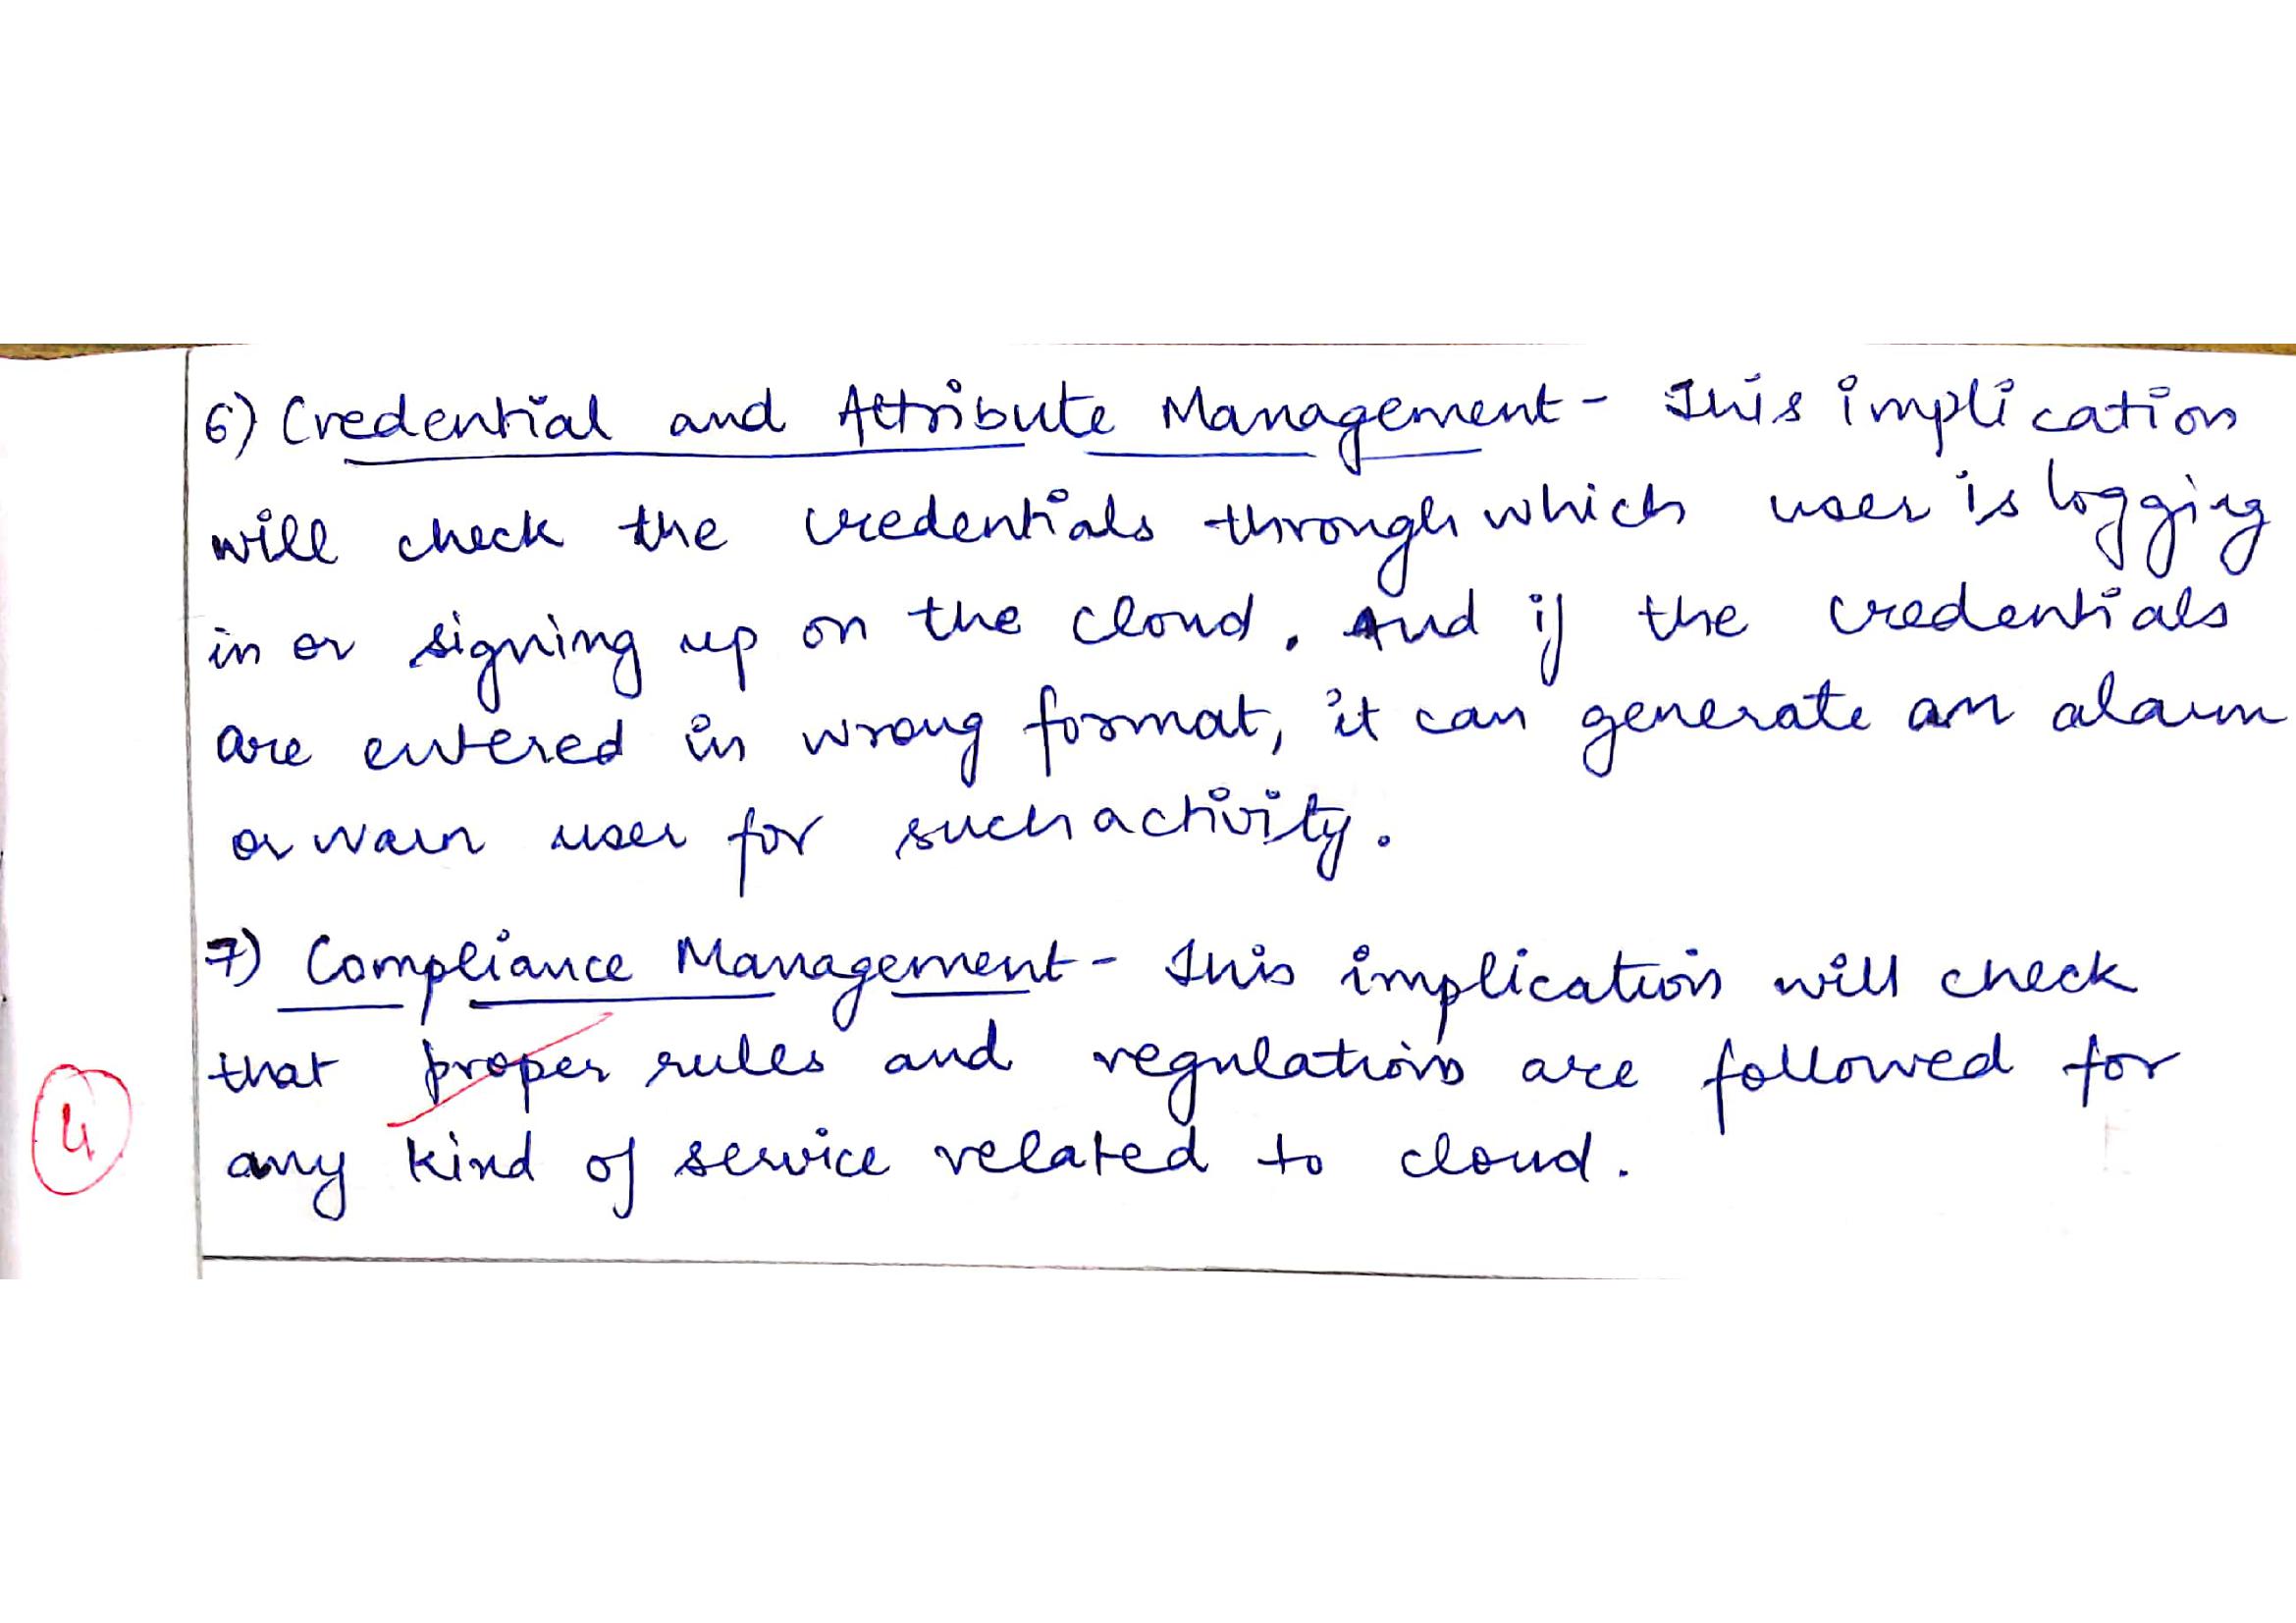 6) Credential and Attribute Management - This implication
will check the credentials through which user is logging
in or signing up on the cloud. And if the credentials
are entered in wrong format, it can generate an alarm
or warn user for such activity.
7) Compliance Management - This implication will check
that proper rules and regulations are followed for
4
any kind of service related to cloud.